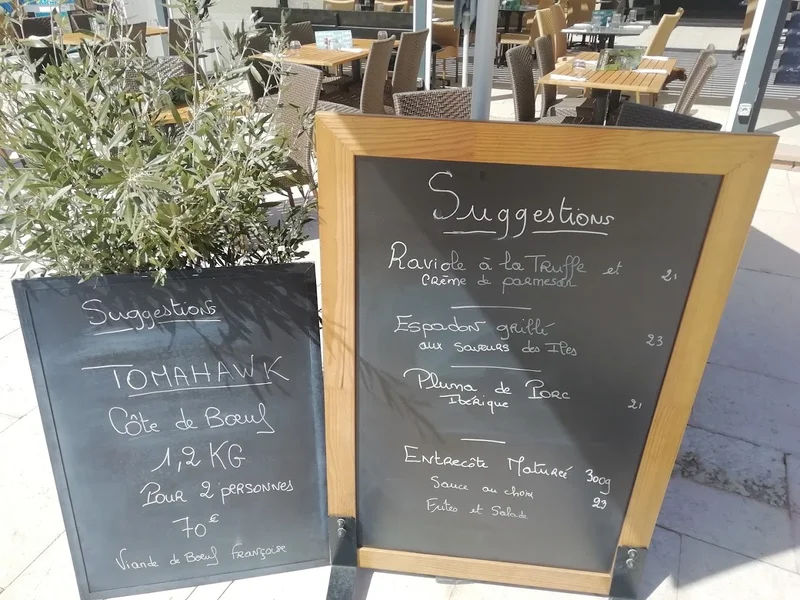 Suggestions
TOMAHAWK
Côte de Bœuf
1,2 KG
Pour 2 personnes
70€
Viande de Bœuf Française
Suggestions
Raviole à la Truffe et 21
Crème de parmesan
Espadon grillé
aux saveurs des Iles 23
Pluma de Porc
Ibérique 21
Entrecôte Maturée 300g
Sauce au choix 23
Frites et Salade